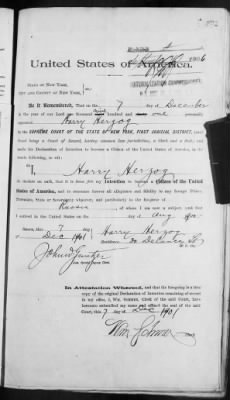 United States of America.
STATE OF NEW YORK,
CITY AND COUNTY OF NEW YORK,
Be it Remembered, That on the 7 day of December
in the year of our Lord one thousand nine hundred and one personally
appeared Harry Herzog
in the SUPREME COURT OF THE STATE OF NEW YORK, FIRST JUDICIAL DISTRICT, (said
Court being a Court of Record, having common law jurisdiction, a Clerk and a Seal), and
made his Declaration of Intention to become a Citizen of the United States of America, in the
words following, to wit:
"I, Harry Herzog
do declare on oath, that it is bona fide my Intention to become a Citizen of the United
States of America, and to renounce forever all allegiance and fidelity to any foreign Prince,
Potentate, State or Sovereignty whatever, and particularly to the Emperor of
Russia of whom I am now a subject, and that
I arrived in the United States on the day of Aug
Sworn, this 7 day of Harry Herzog
Dec 1901 Residence Delancey St
In Attestation Whereof, and that the foregoing is a true
copy of the original Declaration of Intention remaining of record
in my office, I, Wm. Clerk of the said Court, have
hereunto subscribed my name and affixed the seal of the said
Court, this 7 day of Dec 1901
Clerk.